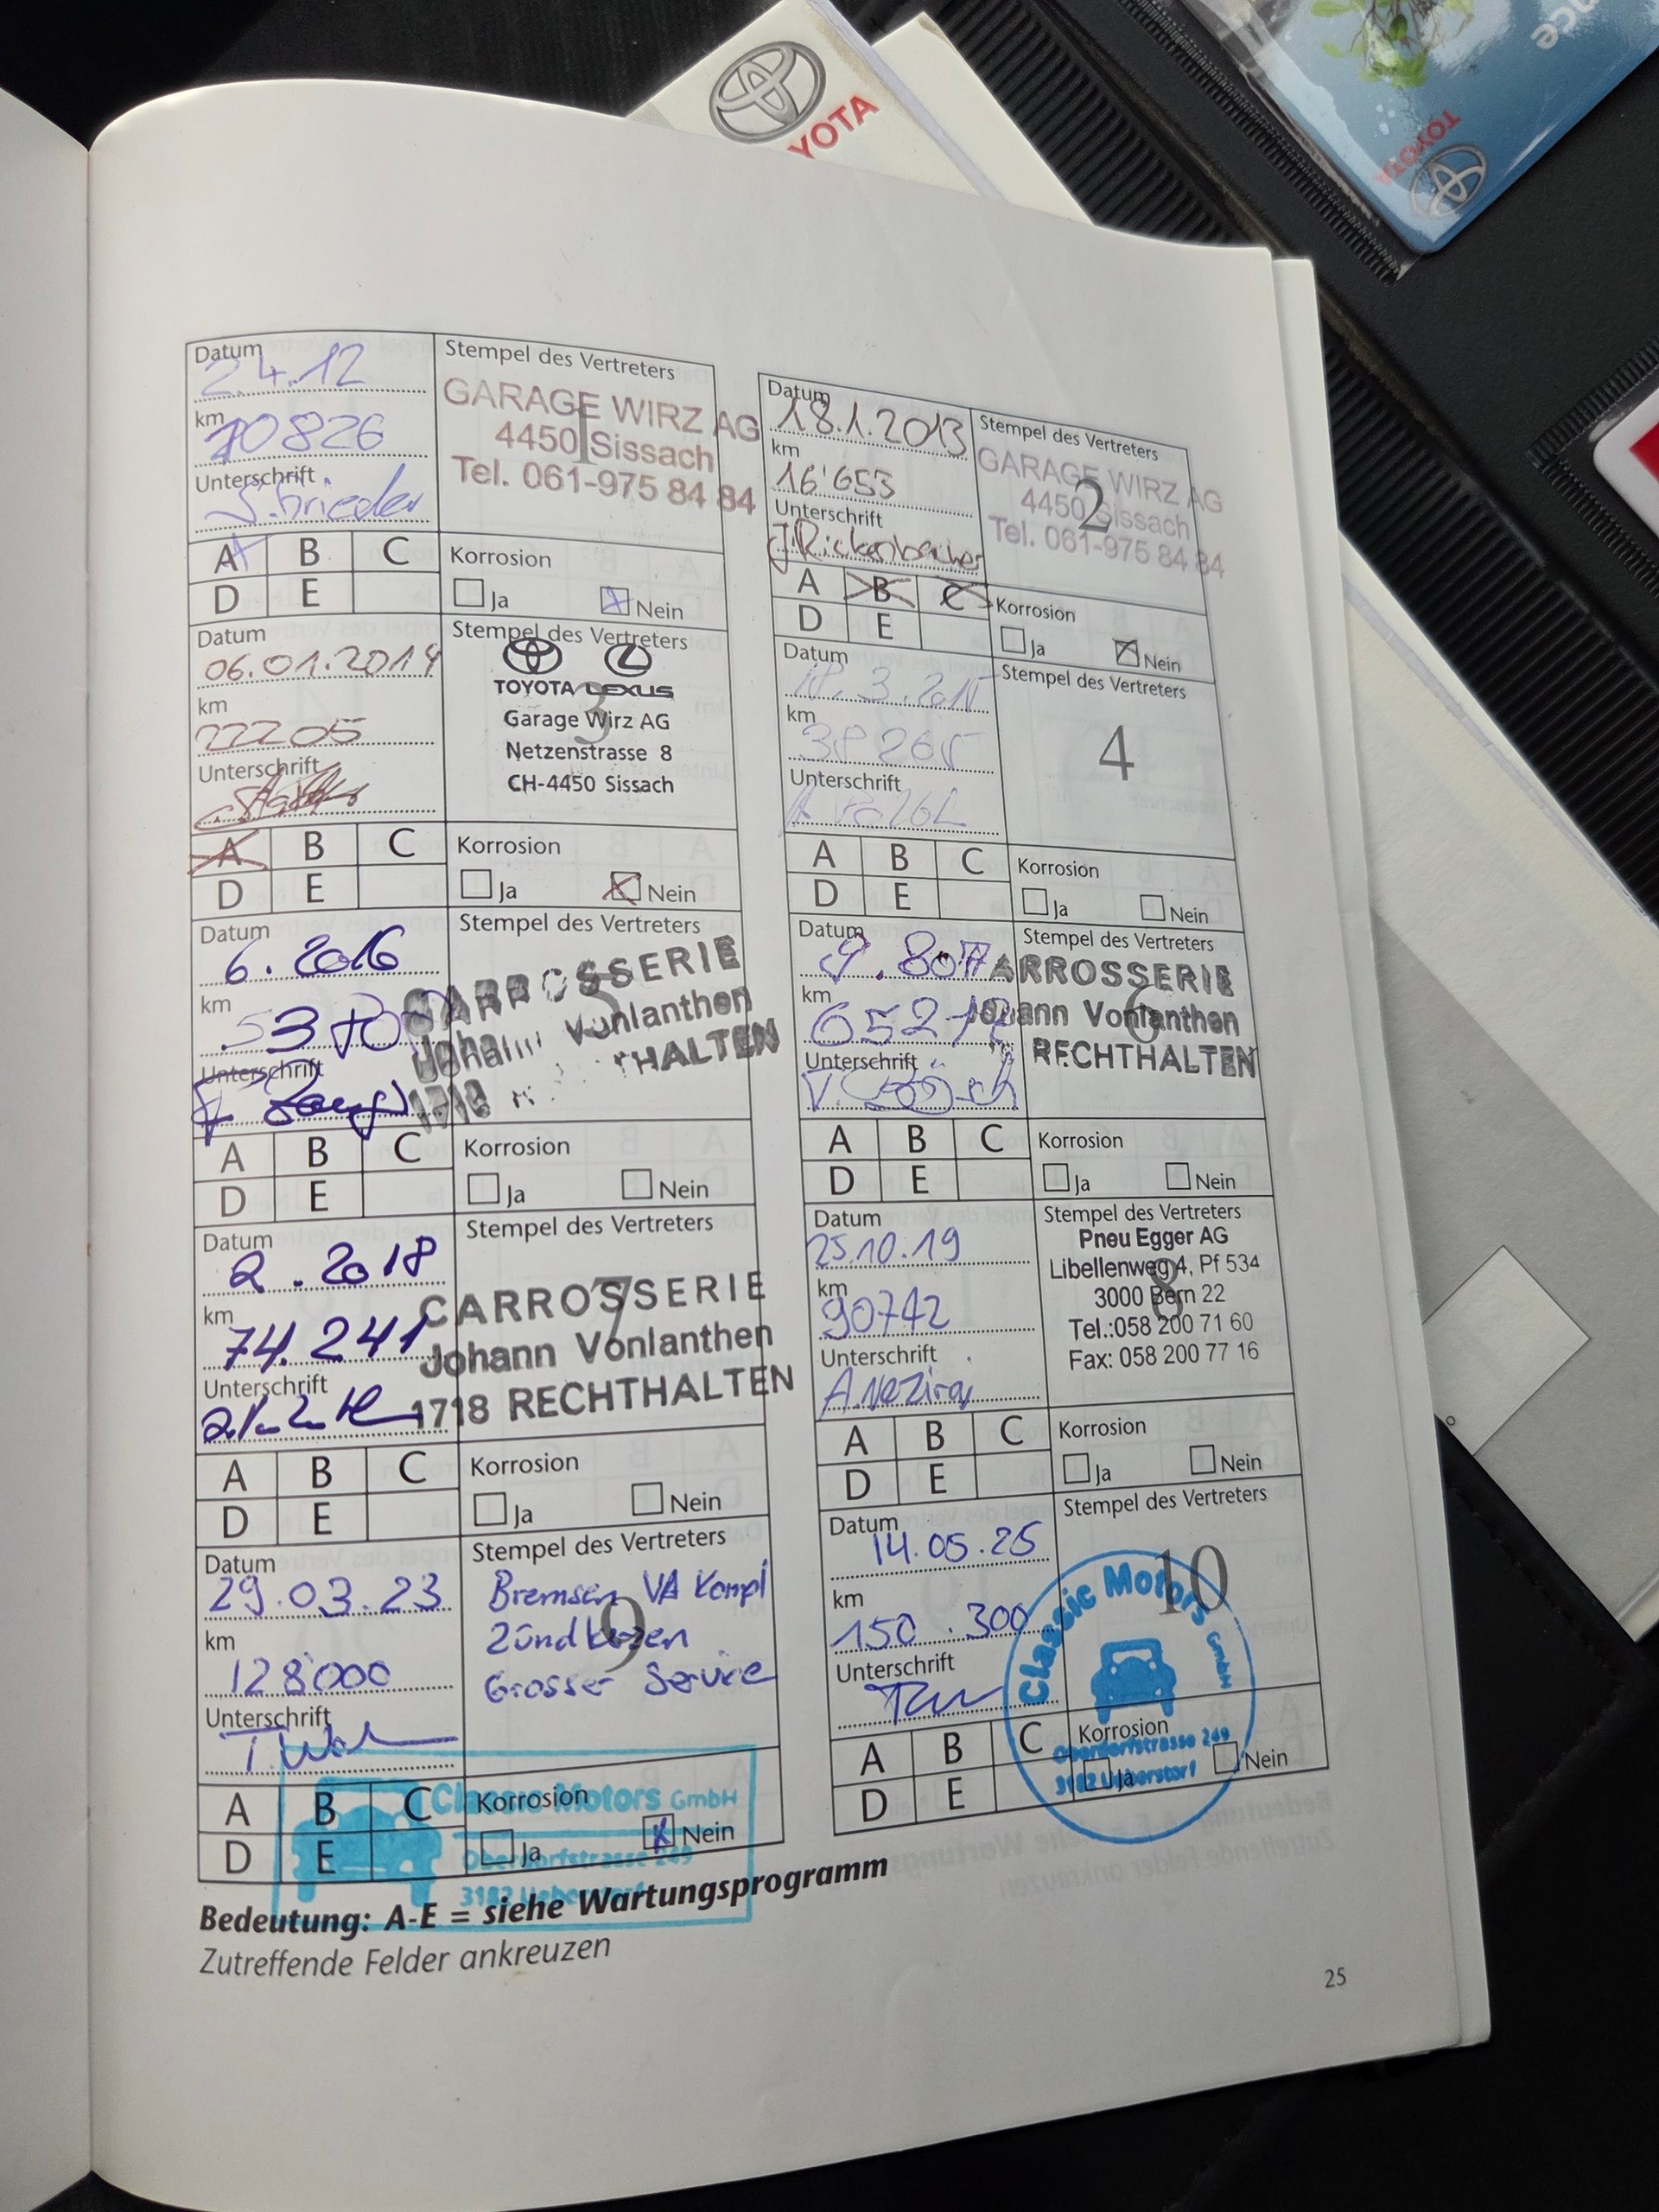 TOYOTA
TOYOTA
Datum
2.4.12
km
10826
Unterschrift
Stempel des Vertreters
1
GARAGE WIRZ AG
4450 Sissach
Tel. 061-975 84 84
A B C
D E
Korrosion
Ja Nein
Datum
18.1.2013
km
16'653
Unterschrift
J. Rickenbacher
Stempel des Vertreters
2
GARAGE WIRZ AG
4450 Sissach
Tel. 061-975 84 84
A B C
D E
Korrosion
Ja Nein
Datum
06.01.2014
km
22205
Unterschrift
Stempel des Vertreters
3
TOYOTA LEXUS
Garage Wirz AG
Netzenstrasse 8
CH-4450 Sissach
A B C
D E
Korrosion
Ja Nein
Datum
km
Unterschrift
Stempel des Vertreters
4
A B C
D E
Korrosion
Ja Nein
Datum
6.2016
km
Unterschrift
Stempel des Vertreters
CARROSSERIE
Johann Vonlanthen
1718 RECHTHALTEN
A B C
D E
Korrosion
Ja Nein
Datum
km
Unterschrift
Stempel des Vertreters
6
CARROSSERIE
Johann Vonlanthen
RECHTHALTEN
A B C
D E
Korrosion
Ja Nein
Datum
2.2018
km
74.241
Unterschrift
Stempel des Vertreters
7
CARROSSERIE
Johann Vonlanthen
1718 RECHTHALTEN
A B C
D E
Korrosion
Ja Nein
Datum
25.10.19
km
90742
Unterschrift
Stempel des Vertreters
8
Pneu Egger AG
Libellenweg 4, Pf 534
3000 Bern 22
Tel.:058 200 71 60
Fax: 058 200 77 16
A B C
D E
Korrosion
Ja Nein
Datum
29.03.23
km
128'000
Unterschrift
Stempel des Vertreters
9
Bremsen VA Kompl
Zündkerzen
Grosser Service
A B C
D E
Korrosion
Ja Nein
Classic Motors GmbH
Oberdorfstrasse 249
3182 Ueberstorf
Datum
14.05.25
km
150.300
Unterschrift
Stempel des Vertreters
10
Classic Motors GmbH
Oberdorfstrasse 249
3182 Ueberstorf
A B C
D E
Korrosion
Ja Nein
Bedeutung: A-E = siehe Wartungsprogramm
Zutreffende Felder ankreuzen
25